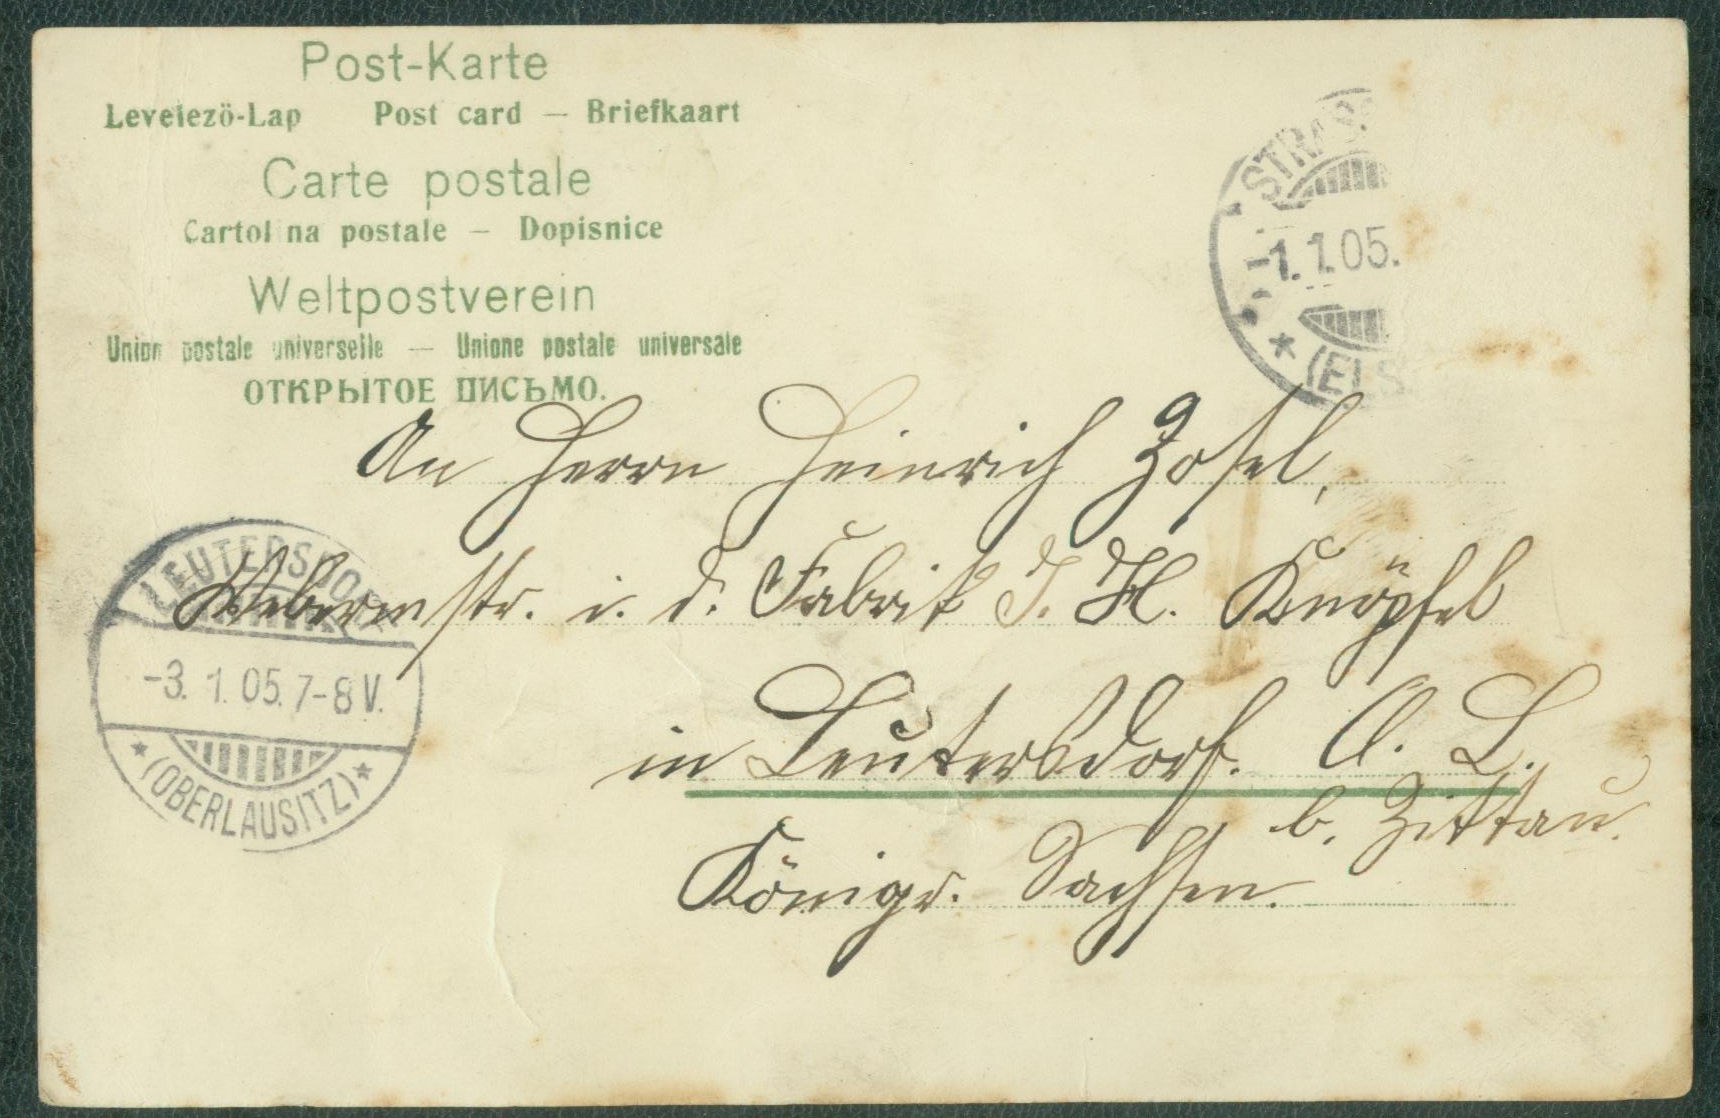 Post-Karte
Levelezö-Lap Post card — Briefkaart
Carte postale
Cartolina postale — Dopisnice
Weltpostverein
Union postale universelle — Unione postale universale
ОТКРЫТОЕ ПИСЬМО.
STRASS
-1.1.05.
* (ELS
An Herrn Heinrich Zosel,
Webermstr. i. d. Fabrik J. H. Knöpfel
in Leutersdorf. O. L.
b. Zittau.
Königr. Sachsen.
LEUTERSDORF
-3. 1. 05. 7-8 V.
* (OBERLAUSITZ) *